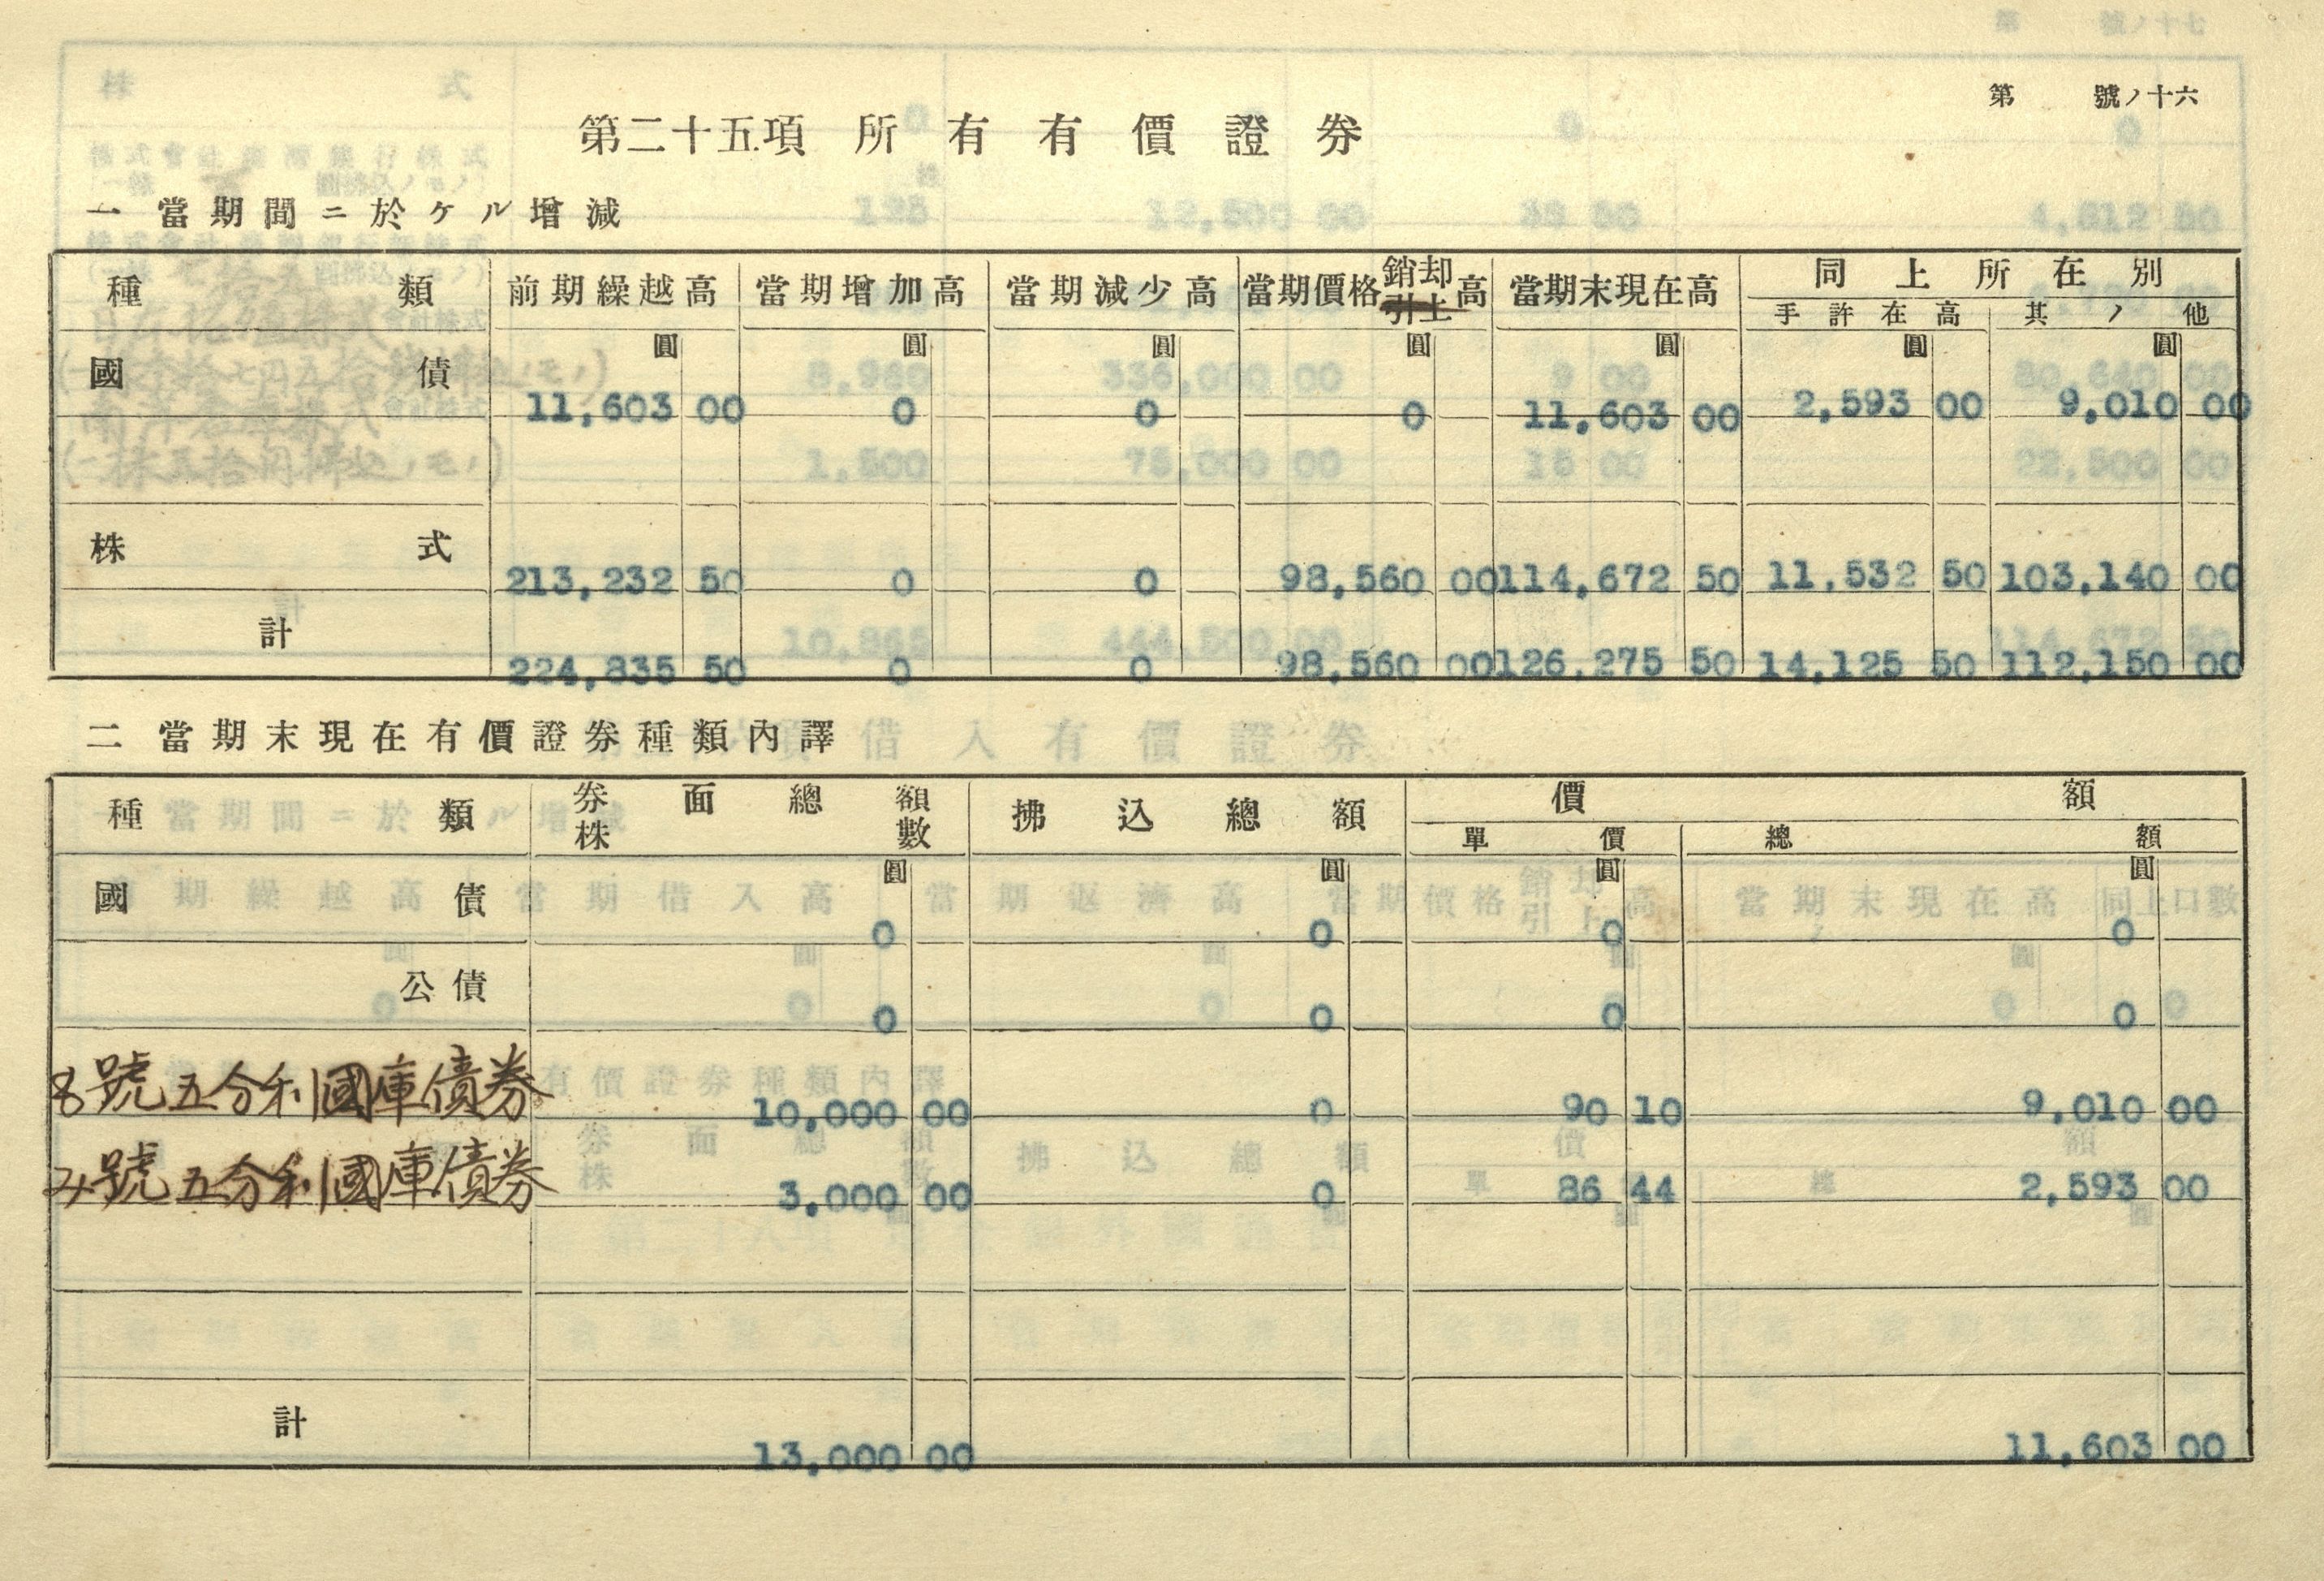 第　號ノ十六
第二十五項 所有有價證券
一 當期間ニ於ケル增減
種類 前期繰越高 當期增加高 當期減少高 當期價格銷却引上高 當期末現在高 同上所在別
手許在高 其ノ他
圓 圓 圓 圓 圓 圓 圓
國債 11,603 00 0 0 0 11,603 00 2,593 00 9,010 00
株式 213,232 50 0 0 98,560 00 114,672 50 11,532 50 103,140 00
計 224,835 50 0 0 98,560 00 126,275 50 14,125 50 112,150 00
二 當期末現在有價證券種類內譯
種類 券面總額 株數 拂込總額 價額
單價 總額
圓 圓 圓 圓
國債 0 0 0 0
公債 0 0 0 0
號五分利國庫債券 10,000 00 0 90 10 9,010 00
み號五分利國庫債券 3,000 00 0 86 44 2,593 00
計 13,000 00 11,603 00